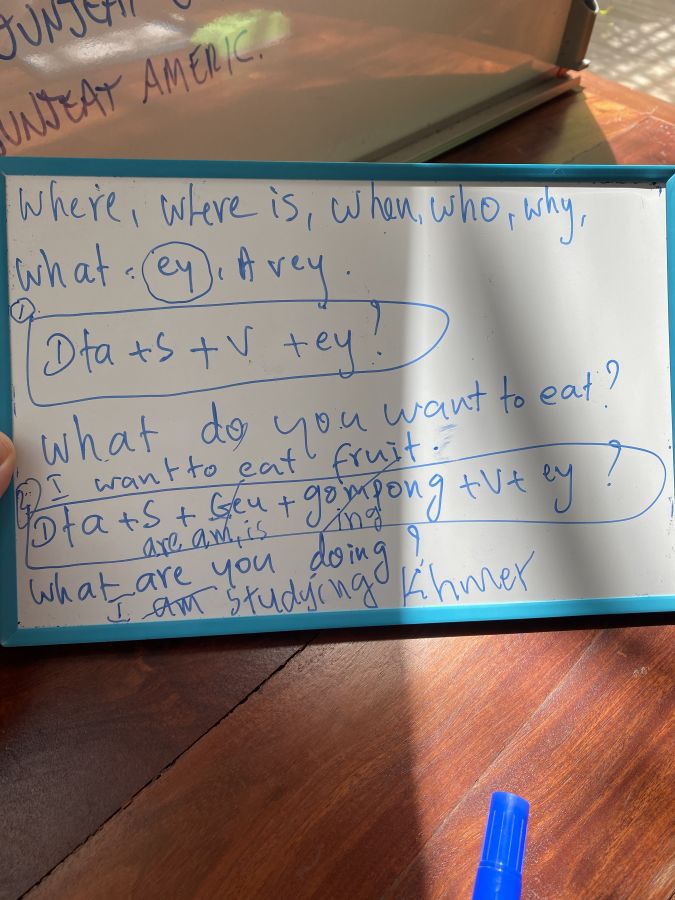 JUNJEAT
JUNJEAT AMERIC.
Where, Where is, when, who, why,
what. ey, A vey.
① Dta + S + V + ey?
What do you want to eat?
I want to eat fruit.
② Dta + S + Geu + gompong + V + ey?
are am, is ing
What are you doing?
I am studying Khmer